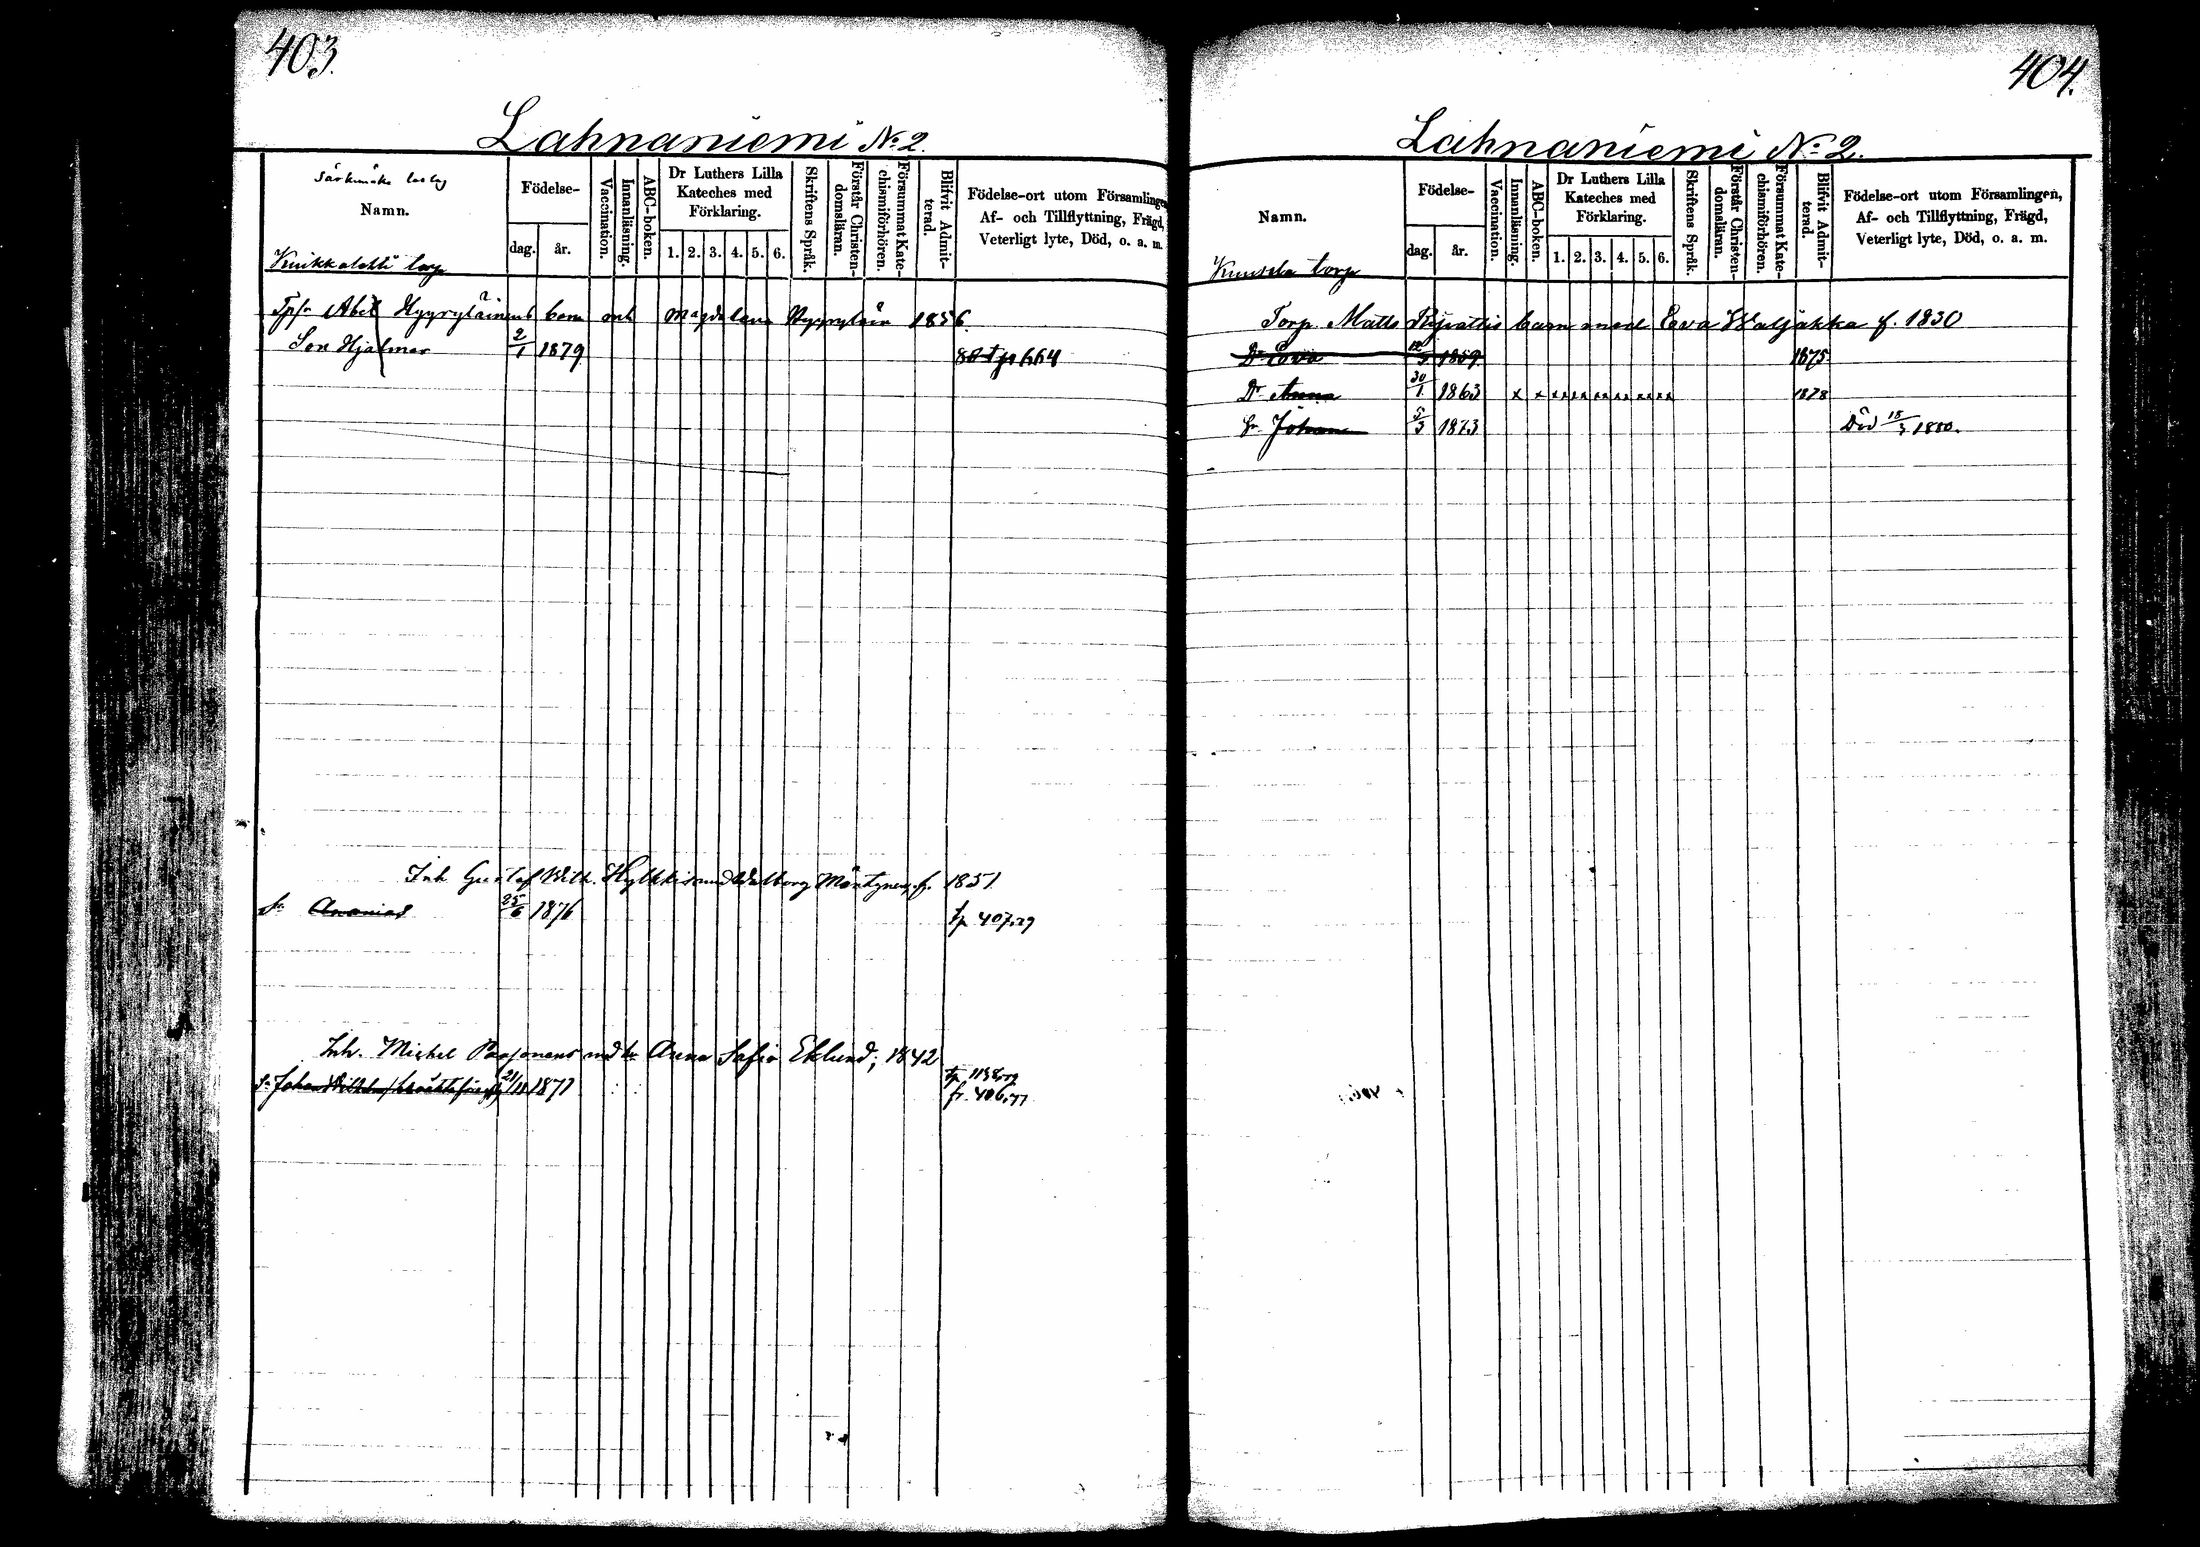 403.
Lahnaniemi № 2.
Namn.
Födelse-
dag.
år.
Vaccination.
Innanläsning.
ABC-boken.
Dr Luthers Lilla Kateches med Förklaring.
1. 2. 3. 4. 5. 6.
Skriftens Språk.
Förstår Christendomsläran.
Försummat Katechismiförhören.
Blifvit Admitterad.
Födelse-ort utom Församlingen,
Af- och Tillflyttning, Frägd,
Veterligt lyte, Död, o. a. m.
torp
Abel Hyyryläinens barn Magdalena 1856.
Son Hjalmar 2/1 1879 664
Inh Gustaf Wilh. Walborg Mäntynen f. 1851
Sn Ananias 25/6 1876 tp 407,79
Inh. Michel Paajanens Anna Sofia Eklund, 1842
Sn Johan Wilhelm 1871 tp 1138,79
fr. 406,77
404.
Lahnaniemi № 2.
Namn.
Födelse-
dag.
år.
Vaccination.
Innanläsning.
ABC-boken.
Dr Luthers Lilla Kateches med Förklaring.
1. 2. 3. 4. 5. 6.
Skriftens Språk.
Förstår Christendomsläran.
Försummat Katechismiförhören.
Blifvit Admitterad.
Födelse-ort utom Församlingen,
Af- och Tillflyttning, Frägd,
Veterligt lyte, Död, o. a. m.
Kuusela torp
Torp. Matts barn med Eva Waljakka f. 1830
Dr Eva 1859 1875
Dr Anna 30/1 1863 x x xx xx xx xx xx xx 1878
Sn Johan 5/3 1873 Död 1880.